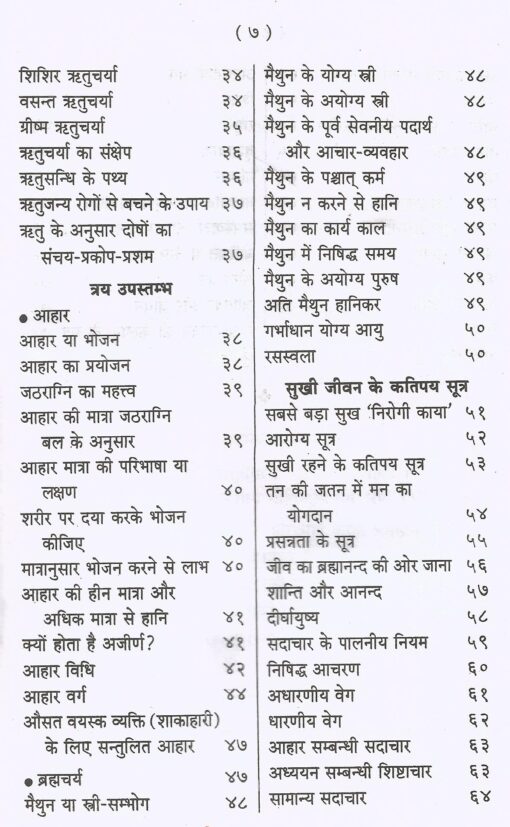 ( ७ )
शिशिर ऋतुचर्या ३४
वसन्त ऋतुचर्या ३४
ग्रीष्म ऋतुचर्या ३५
ऋतुचर्या का संक्षेप ३६
ऋतुसन्धि के पथ्य ३६
ऋतुजन्य रोगों से बचने के उपाय ३७
ऋतु के अनुसार दोषों का
संचय-प्रकोप-प्रशम ३७
त्रय उपस्तम्भ
● आहार
आहार या भोजन ३८
आहार का प्रयोजन ३८
जठराग्नि का महत्त्व ३९
आहार की मात्रा जठराग्नि
बल के अनुसार ३९
आहार मात्रा की परिभाषा या
लक्षण ४०
शरीर पर दया करके भोजन
कीजिए ४०
मात्रानुसार भोजन करने से लाभ ४०
आहार की हीन मात्रा और
अधिक मात्रा से हानि ४१
क्यों होता है अजीर्ण? ४१
आहार विधि ४२
आहार वर्ग ४४
औसत वयस्क व्यक्ति (शाकाहारी)
के लिए सन्तुलित आहार ४७
● ब्रह्मचर्य ४७
मैथुन या स्त्री-सम्भोग ४८
मैथुन के योग्य स्त्री ४८
मैथुन के अयोग्य स्त्री ४८
मैथुन के पूर्व सेवनीय पदार्थ
और आचार-व्यवहार ४८
मैथुन के पश्चात् कर्म ४९
मैथुन न करने से हानि ४९
मैथुन का कार्य काल ४९
मैथुन में निषिद्ध समय ४९
मैथुन के अयोग्य पुरुष ४९
अति मैथुन हानिकर ४९
गर्भाधान योग्य आयु ५०
रसस्वला ५०
सुखी जीवन के कतिपय सूत्र
सबसे बड़ा सुख 'निरोगी काया' ५१
आरोग्य सूत्र ५२
सुखी रहने के कतिपय सूत्र ५३
तन की जतन में मन का
योगदान ५४
प्रसन्नता के सूत्र ५५
जीव का ब्रह्मानन्द की ओर जाना ५६
शान्ति और आनन्द ५७
दीर्घायुष्य ५८
सदाचार के पालनीय नियम ५९
निषिद्ध आचरण ६०
अधारणीय वेग ६१
धारणीय वेग ६२
आहार सम्बन्धी सदाचार ६३
अध्ययन सम्बन्धी शिष्टाचार ६३
सामान्य सदाचार ६४